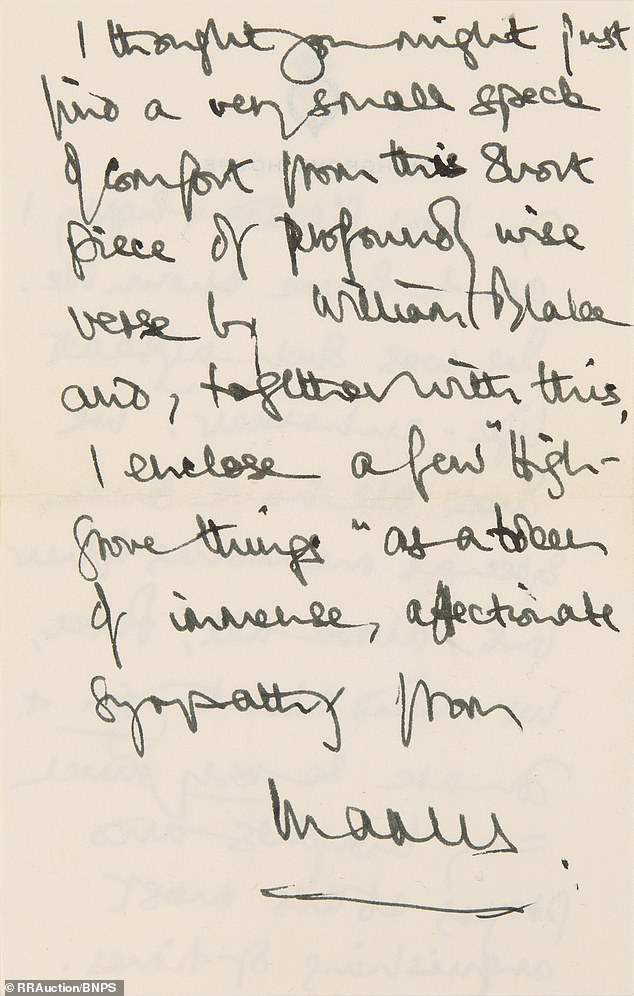 I thought you might just
find a very small speck
of comfort from this short
piece of profoundly wise
verse by William Blake
and, together with this,
I enclose a few "High-
grove things" as a token
of immense, affectionate
sympathy from
Charles
© RRAuction/BNPS